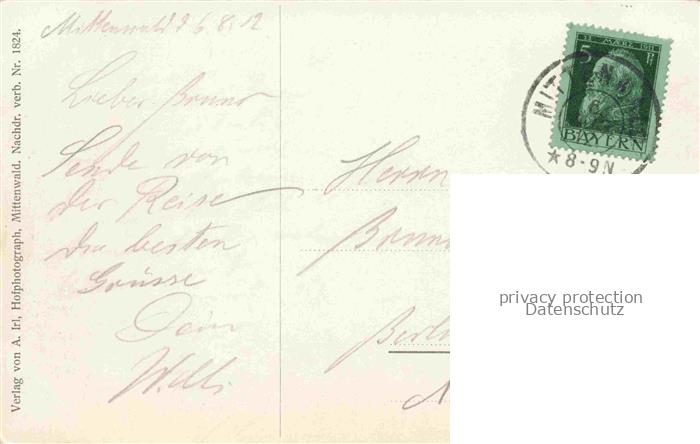 Mittenwald d 6.8.12
Lieber Bruno
Sende von
der Reise
die besten
Grüsse
Dein
Willi
Verlag von A. Irl, Hofphotograph, Mittenwald. Nachdr. verb. Nr. 1824.
12. MÄRZ 1911
5 Pf
BAYERN
★8-9N
Herrn
Berlin
privacy protection
Datenschutz